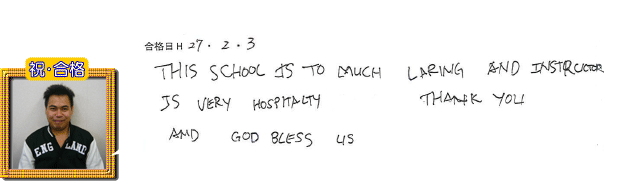 祝・合格
合格日 H 27. 2. 3
THIS SCHOOL IS TO MUCH LARING AND INSTRCUTOR
IS VERY HOSPITALTY THANK YOU
AND GOD BLESS US
ENGLAND